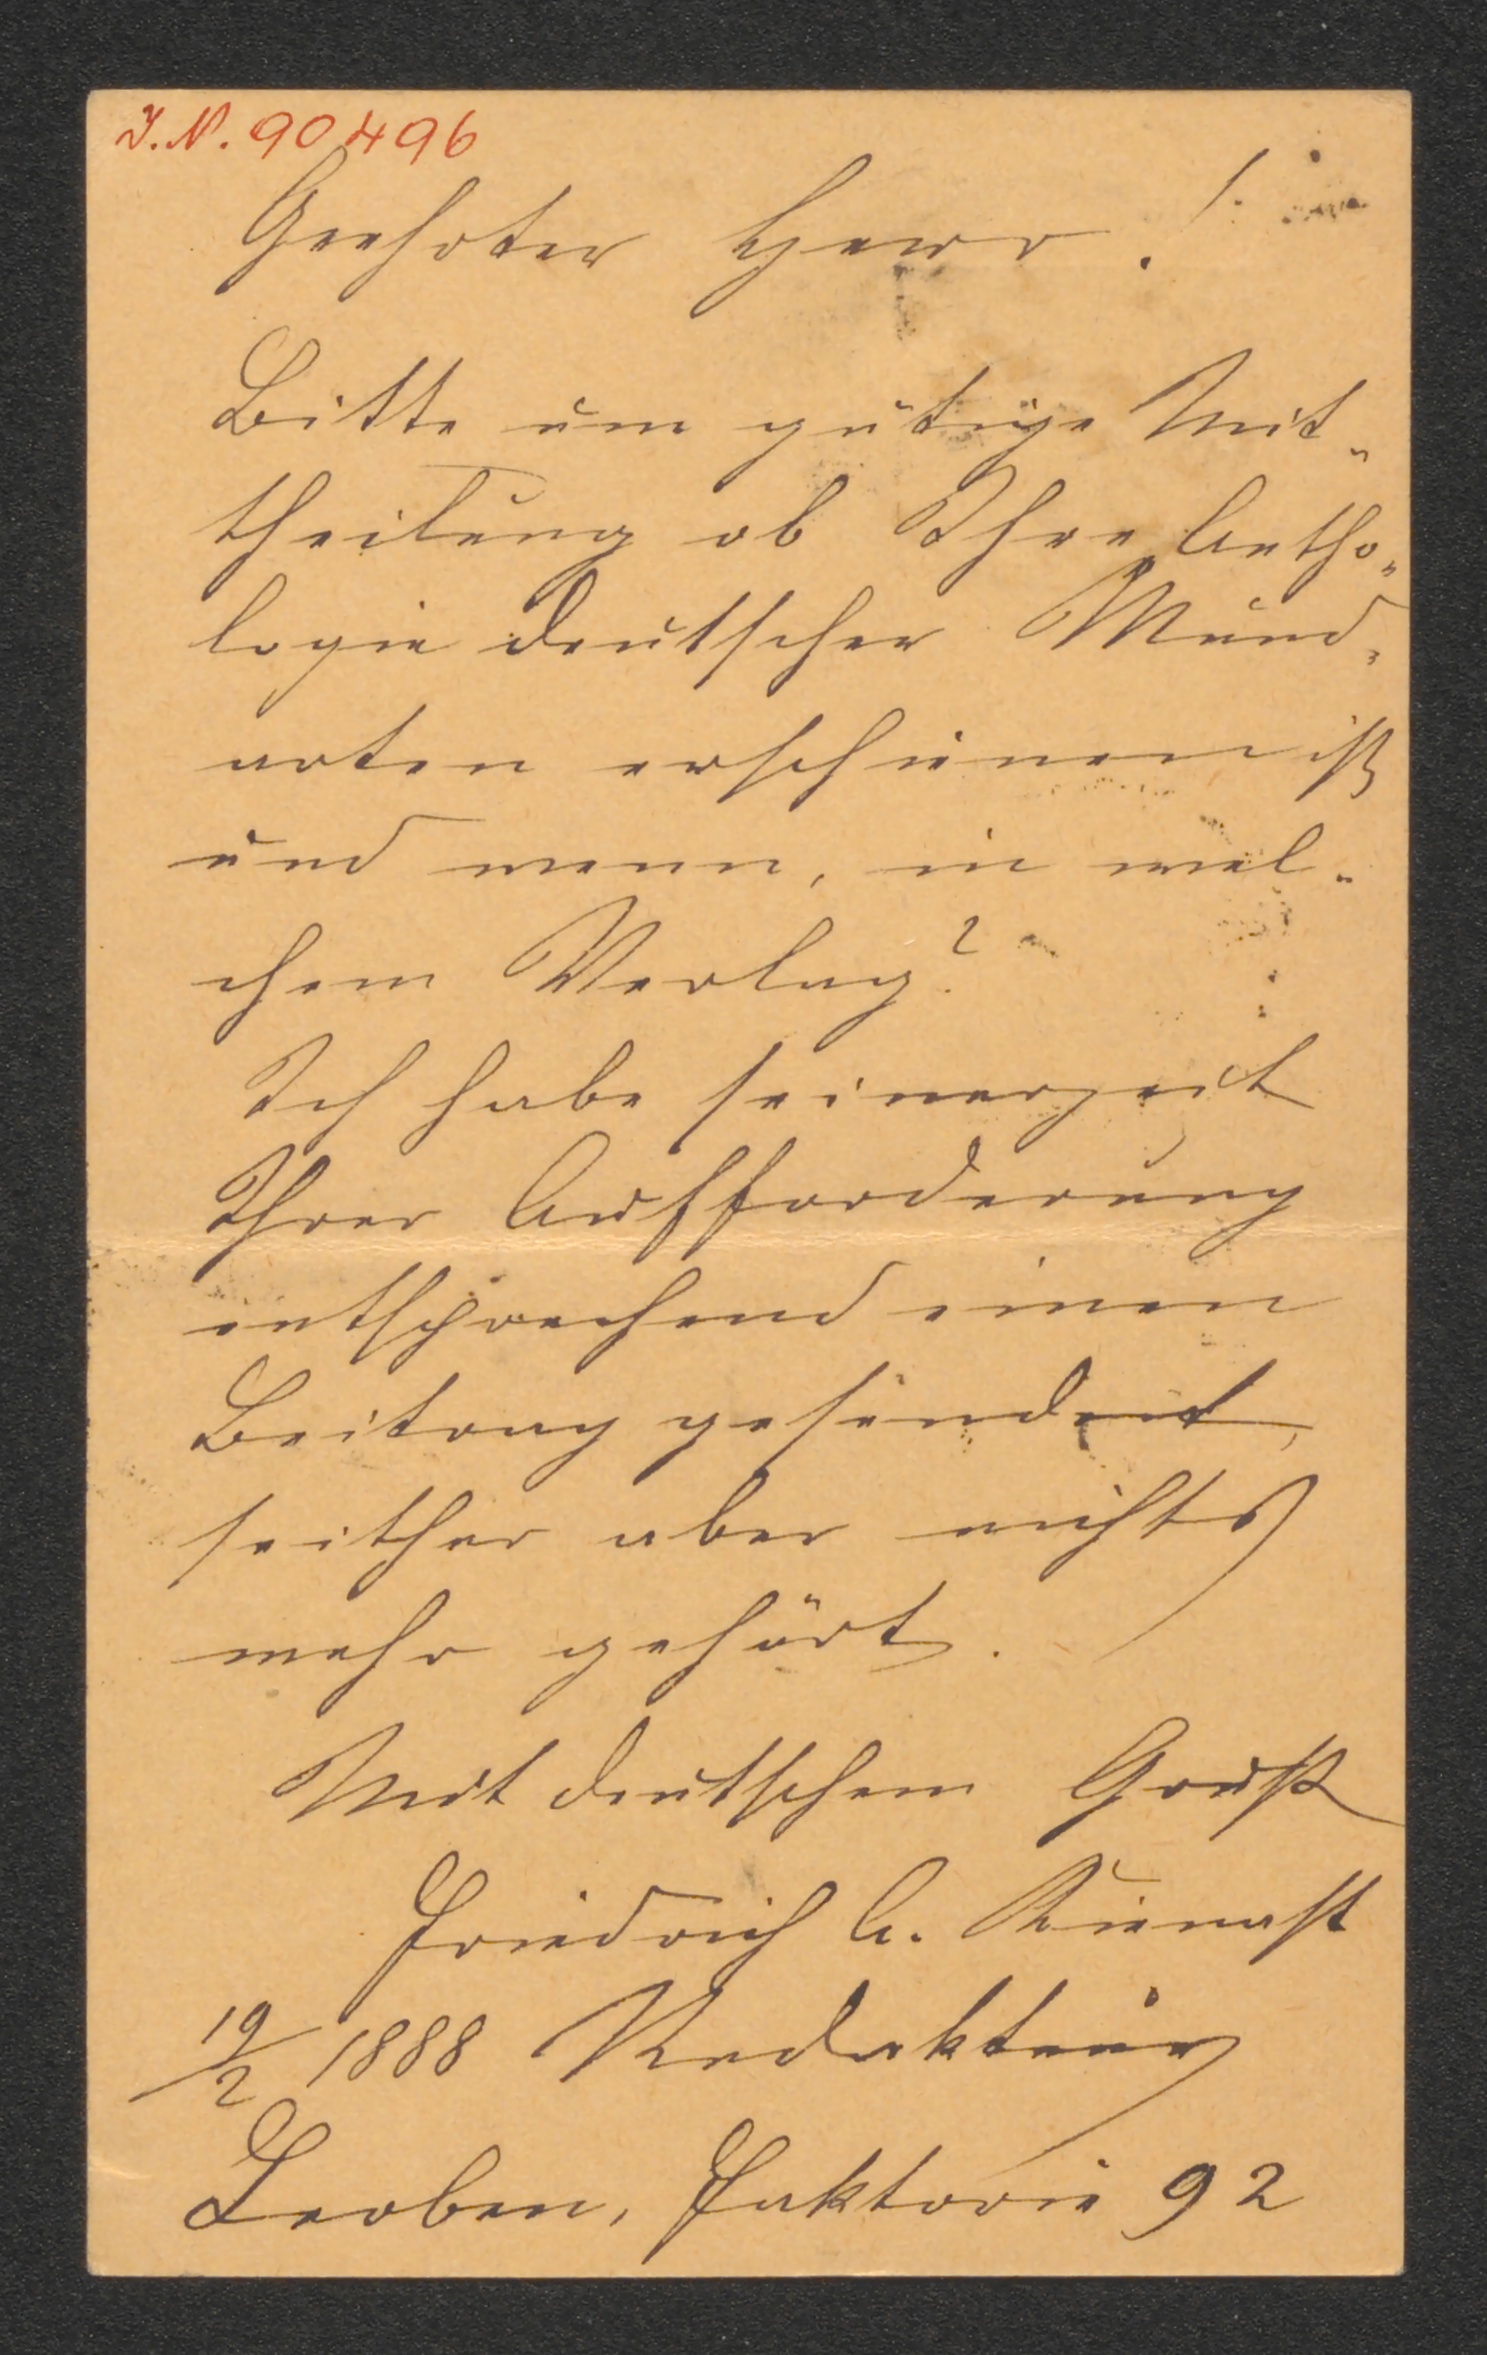 I.N. 90496
Geehrter Herr!
Bitte um gütige Mit-
theilung ob Ihre Antho-
logie deutscher Mund-
arten erschienen ist
und wenn, in wel-
chem Verlag?
Ich habe seinerzeit
Ihrer Aufforderung
entsprechend einen
Beitrag gesendet,
seither aber nichts
mehr gehört.
Mit deutschem Gruß
Friedrich A. Kienast
19/2 1888 Redakteur
Leoben, Faktorie 92